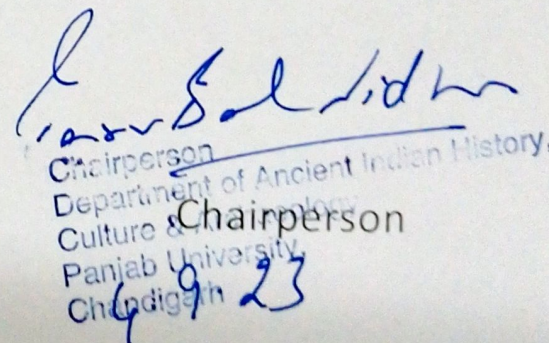 Chairperson
Department of Ancient Indian History,
Culture &
Chairperson
Panjab University,
Chandigarh
4.9.23